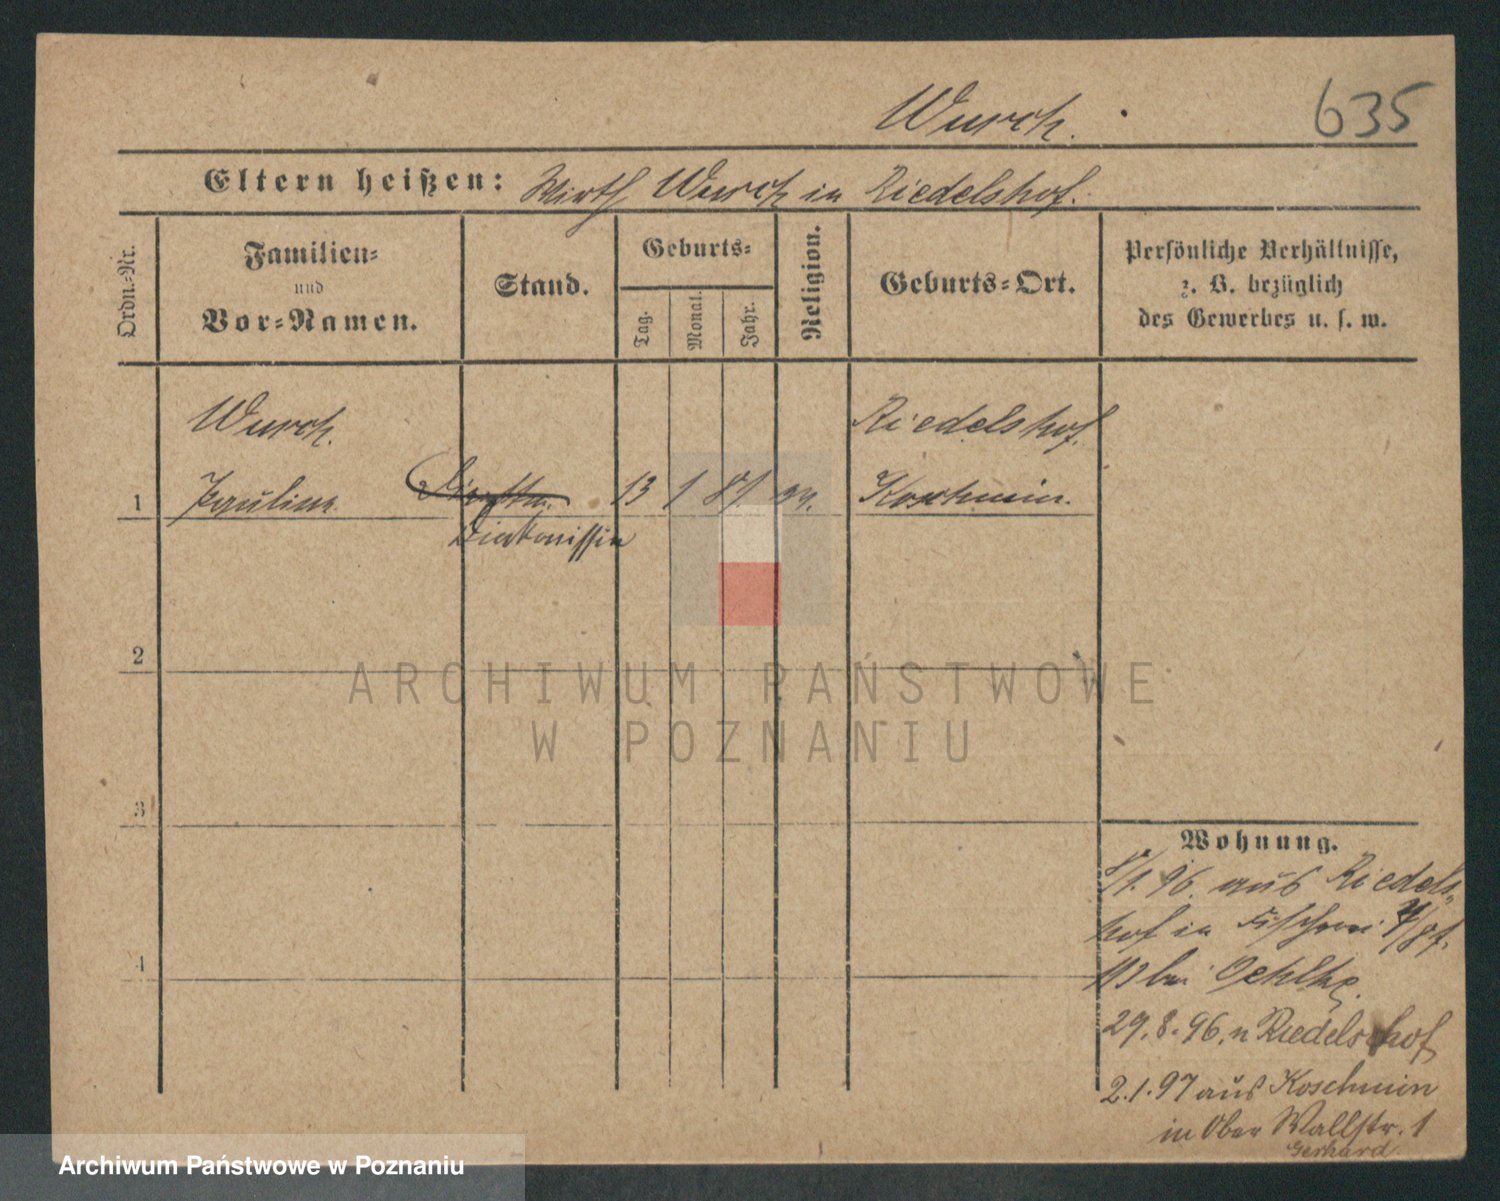 Wurch.
635
Eltern heißen: Wirth Wurch in Riedelshof.
Ordn.=Nr.
Familien=
und
Vor=Namen.
Stand.
Geburts=
Tag.
Monat.
Jahr.
Religion.
Geburts=Ort.
Persönliche Verhältnisse,
z. B. bezüglich
des Gewerbes u. s. w.
Wurch.
Riedelshof.
1 Pauline 13 1 81. Koschmin.
Diakonissin
2
ARCHIWUM PAŃSTWOWE
W POZNANIU
3
4
Wohnung.
8/1. 96. aus Riedels=
hof in Fischerei
bei Oehlke.
29.8.96. n Riedelshof
2.1.97 aus Koschmin
in Ober Wallstr. 1
Gerhard
Archiwum Państwowe w Poznaniu